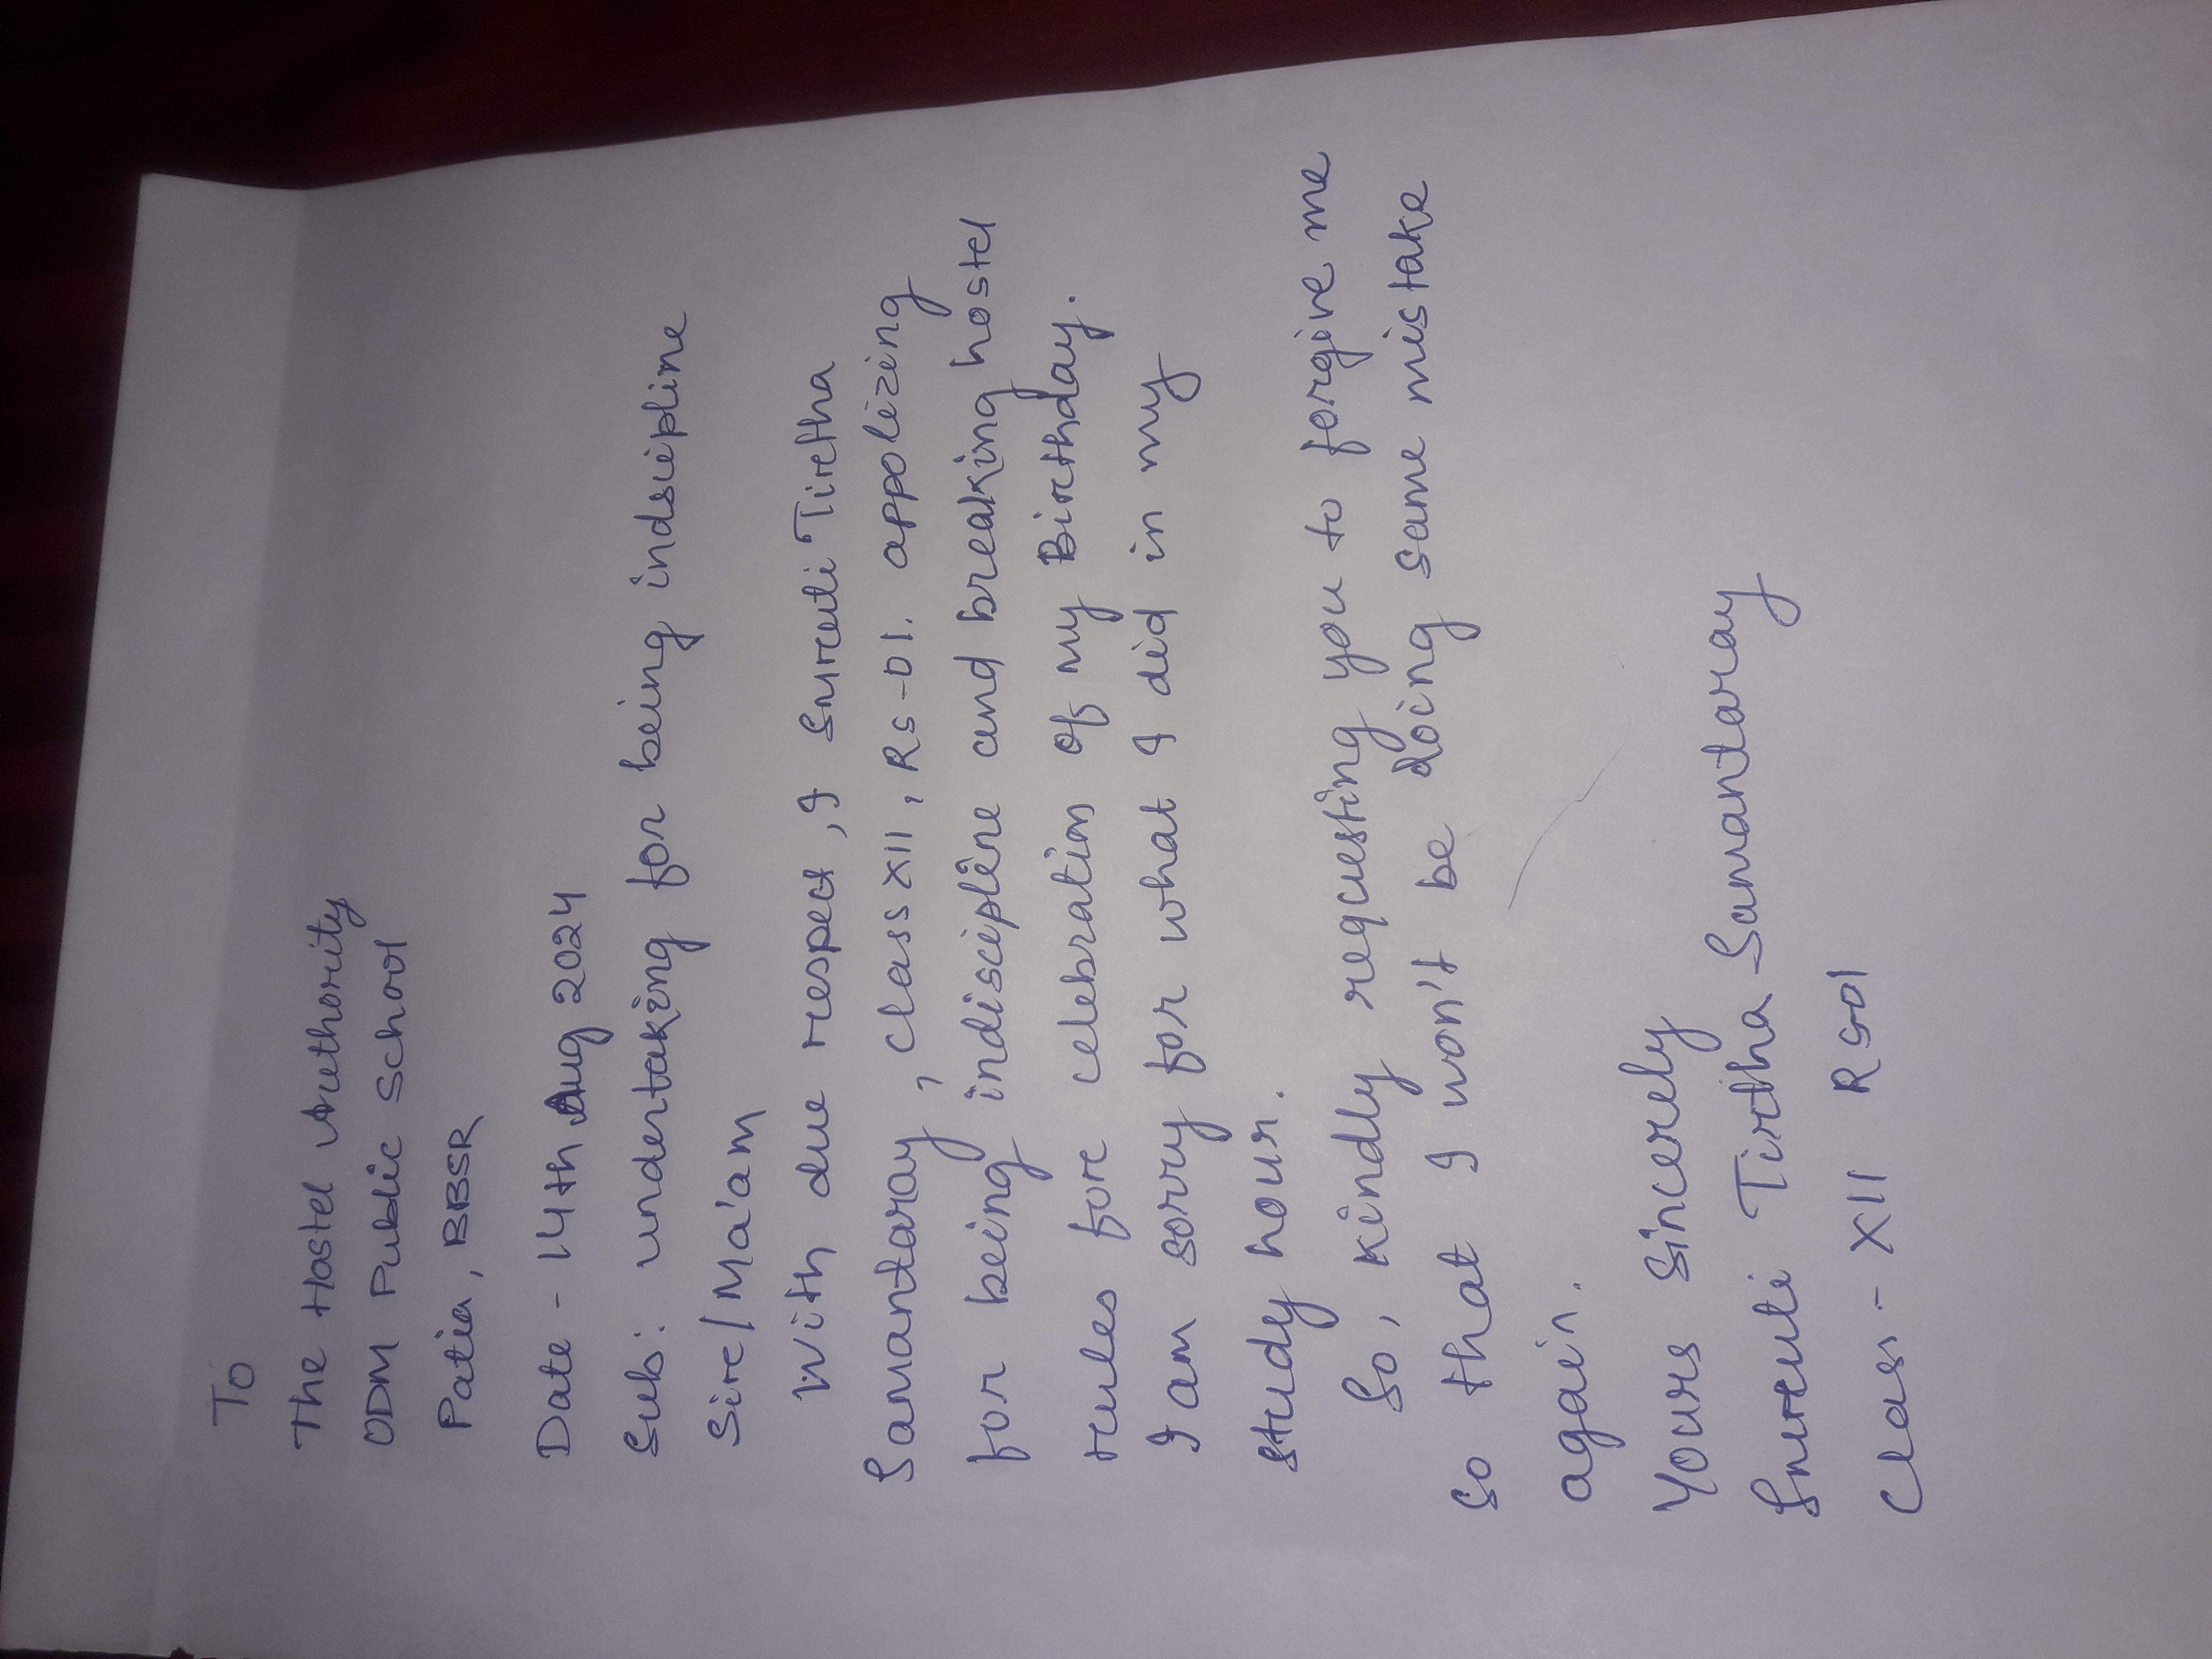 To
The Hostel Authority
ODM Public School
Patia, BBSR
Date - 14th Aug 2024
Sub: undertaking for being indsicpline
Sir/Ma'am
With due respect, I Smruti Tirtha
Samantaray, class XII, RS-01. appolizing
for being indiscipline and breaking hostel
rules for celebration of my Birthday.
I am sorry for what I did in my
study hour.
So, kindly requesting you to forgive me
so that I won't be doing same mistake
again.
Yours Sincerely
Smruti Tirtha Samantaray
Class - XII RS01